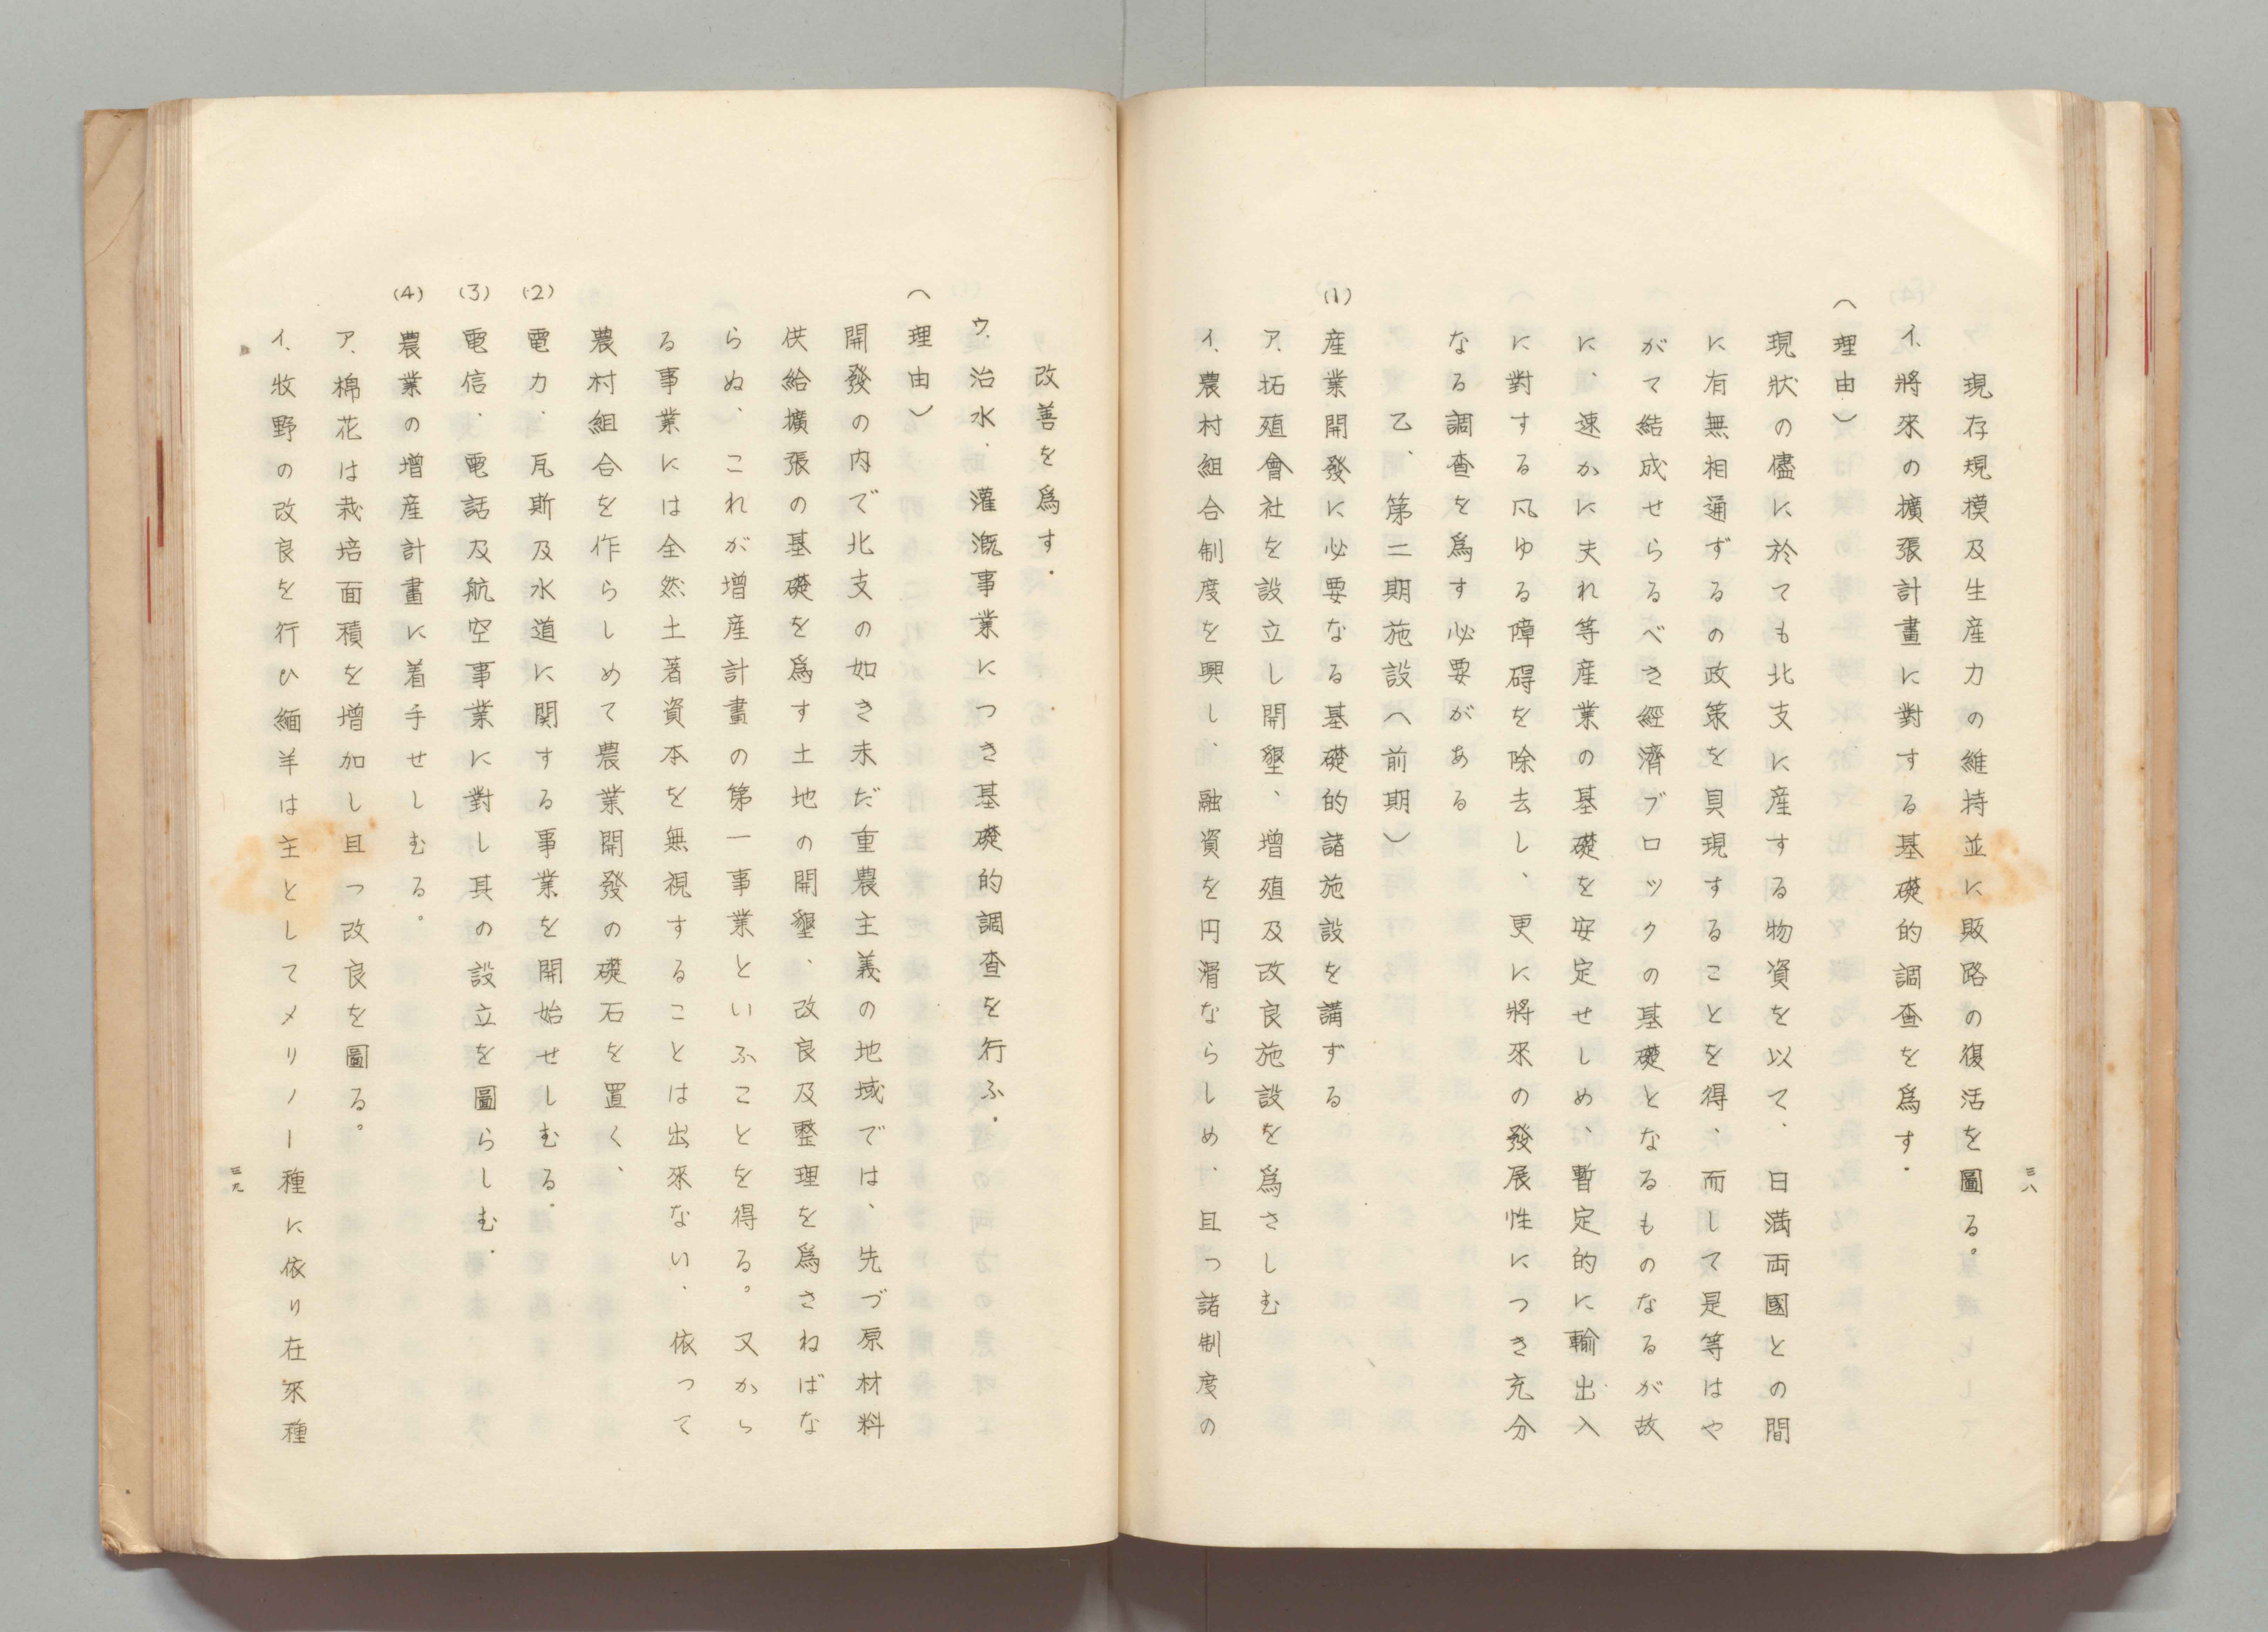 三八
現存規模及生産力の維持並に販路の復活を圖る。
イ、將來の擴張計畫に對する基礎的調查を爲す．
（理由）
現狀の儘に於ても北支に産する物資を以て、日満両國との間
に有無相通ずるの政策を具現することを得、而して是等はや
がて結成せらるべき經濟ブロックの基礎となるものなるが故
に、速かに夫れ等産業の基礎を安定せしめ、暫定的に輸出入
に對する凡ゆる障碍を除去し、更に將來の發展性につき充分
なる調查を爲す必要がある
乙、第二期施設（前期）
(1) 産業開發に必要なる基礎的諸施設を講ずる
ア、拓殖會社を設立し開墾、増殖及改良施設を爲さしむ
イ、農村組合制度を興し、融資を円滑ならしめ、且つ諸制度の
改善を爲す．
ウ、治水、灌漑事業につき基礎的調查を行ふ．
（理由）
開發の内で北支の如き未だ重農主義の地域では、先づ原材料
供給擴張の基礎を爲す土地の開墾、改良及整理を爲さねばな
らぬ、これが増産計畫の第一事業といふことを得る。又から
る事業には全然土著資本を無視することは出來ない、依って
農村組合を作らしめて農業開發の礎石を置く、
(2) 電力、瓦斯及水道に関する事業を開始せしむる．
(3) 電信、電話及航空事業に對し其の設立を圖らしむ．
(4) 農業の増産計畫に着手せしむる。
ア、棉花は栽培面積を増加し且つ改良を圖る。
イ、牧野の改良を行ひ緬羊は主としてメリノー種に依り在來種
三九